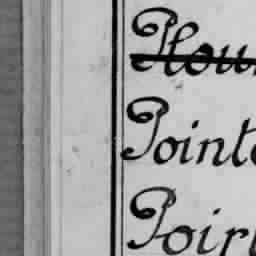 Plou
Pointe
Poir